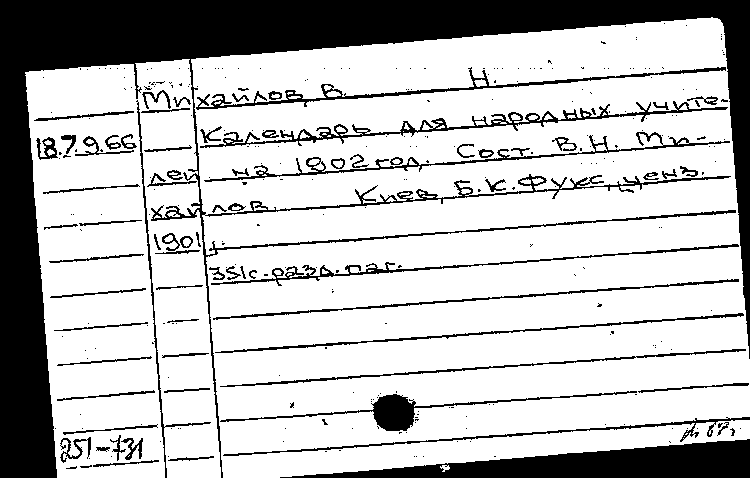 Михайлов, В. Н.
18.7.9.66 Календарь для народных учите-
лей на 1902 год. Сост. В.Н. Ми-
хайлов. Киев, Б.К. Фукс, ценз.
1901 г.
351с. разд. паг.
251-731